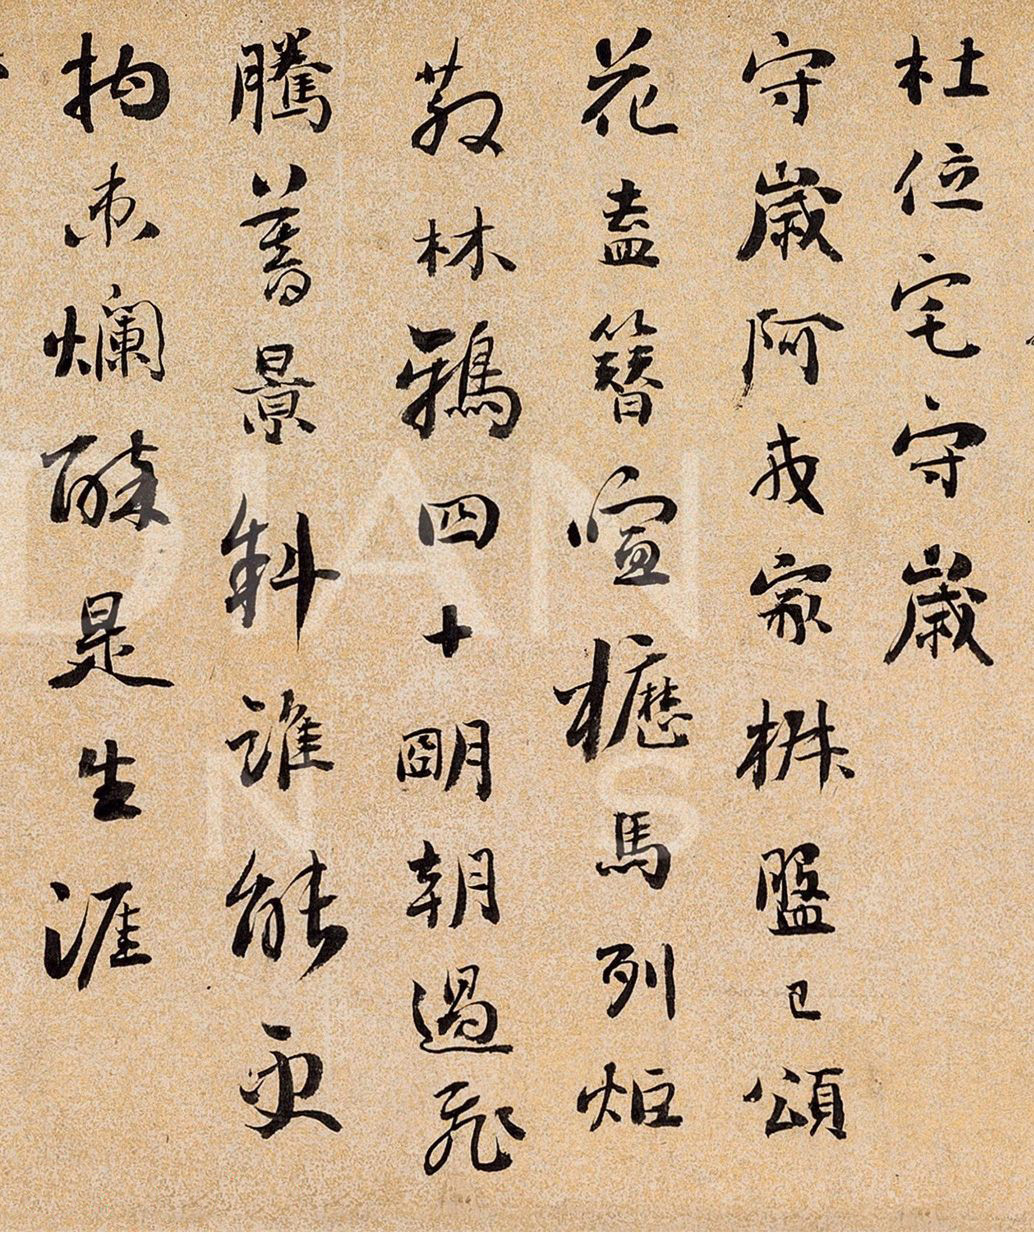 杜位宅守歲
守歲阿戎家椒盤已頌
花盍簪喧櫪馬列炬
散林鴉四十明朝過飛
騰暮景斜誰能更
拘束爛醉是生涯